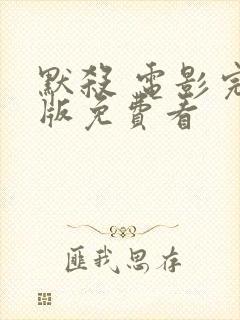 默殺 電影完
版免費看
匪我思存